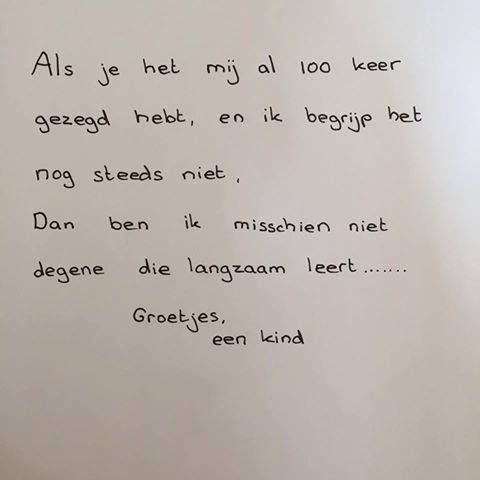 Als je het mij al 100 keer
gezegd hebt, en ik begrijp het
nog steeds niet,
Dan ben ik misschien niet
degene die langzaam leert.......
Groetjes,
een kind